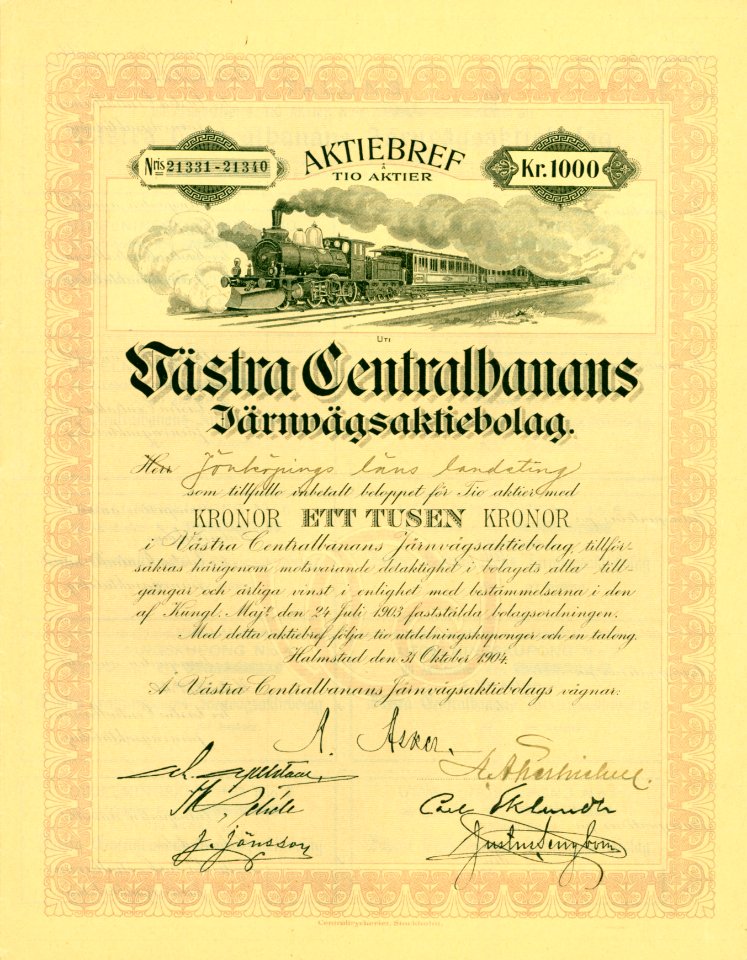 AKTIEBREF
Nris 21331-21340
Å
Kr. 1000
TIO AKTIER
UTI
Västra Centralbanans
Järnvägsaktiebolag.
Herr Jönköpings läns landsting
som tillfullo inbetalt beloppet för Tio aktier med
KRONOR ETT TUSEN KRONOR
i Västra Centralbanans Järnvägsaktiebolag, tillför-
säkras härigenom motsvarande delaktighet i bolagets alla till-
gångar och årliga vinst i enlighet med bestämmelserna i den
af Kungl. Maj:t den 24 Juli 1903 fastställda bolagsordningen.
Med detta aktiebref följa tio utdelningskuponger och en talong.
Halmstad den 31 Oktober 1904.
Å Västra Centralbanans Järnvägsaktiebolags vägnar:
A. Asker.
Carl Eklundh
J. Jönsson
Justus Tengbom
Centraltryckeriet, Stockholm.